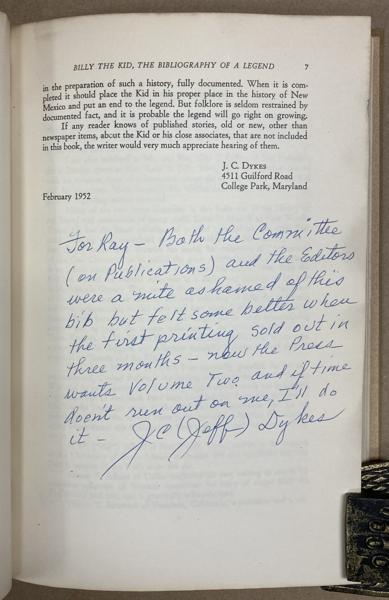 BILLY THE KID, THE BIBLIOGRAPHY OF A LEGEND 7
in the preparation of such a history, fully documented. When it is com-
pleted it should place the Kid in his proper place in the history of New
Mexico and put an end to the legend. But folklore is seldom restrained by
documented fact, and it is probable the legend will go right on growing.
If any reader knows of published stories, old or new, other than
newspaper items, about the Kid or his close associates, that are not included
in this book, the writer would very much appreciate hearing of them.
J. C. DYKES
4511 Guilford Road
College Park, Maryland
February 1952
For Ray - Both the Committee
(on Publications) and the Editors
were a mite ashamed of this
bib but felt some better when
the first printing sold out in
three months - now the Press
wants Volume Two and if time
doesn't run out on me, I'll do
it - JC (Jeff) Dykes